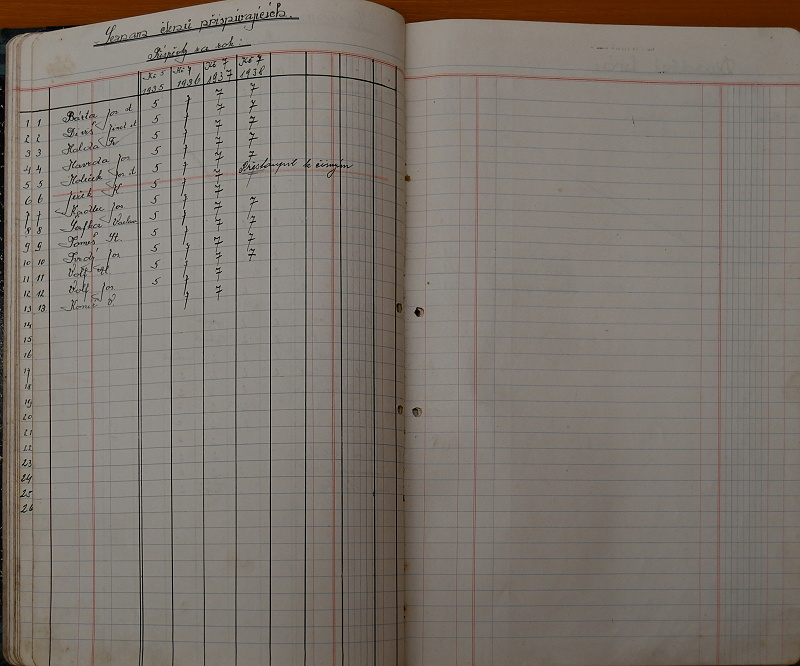 Seznam členů přispívajících.
Příspěvky za rok:
Kč 5 Kč 7 Kč 7 Kč 7
1935 1936 1937 1938
1 1 Bárta Jos. st 5 7 7 7
2 2 Diviš 5 7 7 7
3 3 Halda Fr 5 7 7 7
4 4 Havrda Jos 5 7 7 7
5 5 Jos. st 5 7 7 7
6 6 Ježek 5 7 7 Přestoupil k činným
7 7 Kadlec Jos 5 7 7
8 8 Šafka Václav 5 7 7 7
9 9 Tomeš St. 5 7 7 7
10 10 Tvrdý Jos 5 7 7 7
11 11 Volf 5 7 7 7
12 12 Volf Jos 5 7 7
13 13 V. 7 7
14
15
16
17
18
19
20
21
22
23
24
25
26